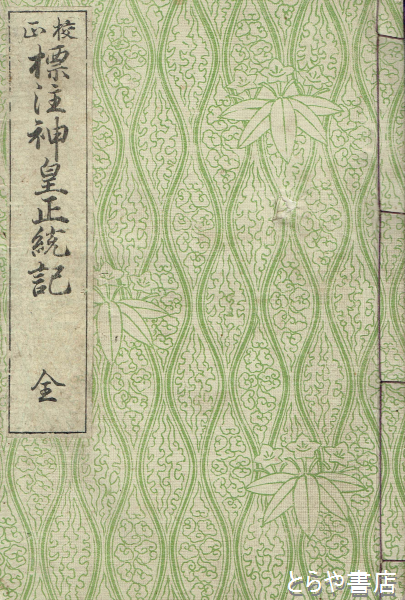 校正
標注神皇正統記 全
とらや書店